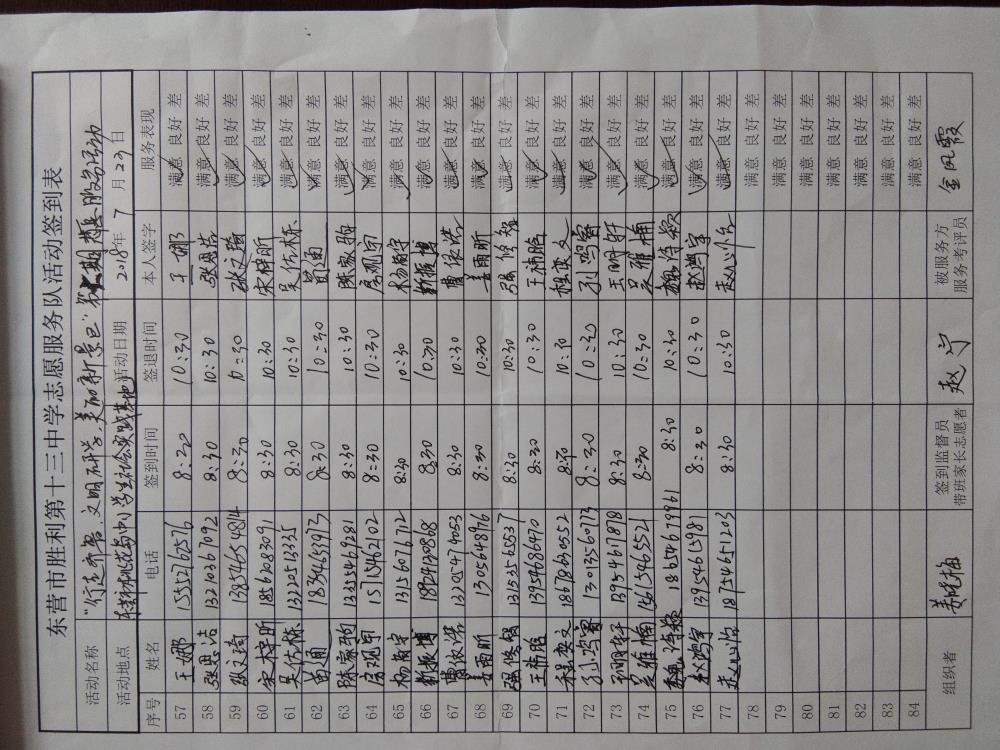 东营市胜利第十三中学志愿服务队活动签到表
活动名称 "行走齐鲁、文明研学、美丽新景色" 第七期志愿服务活动
活动地点 中小学生社会实践基地 活动日期 2018年 7 月 29 日
序号 姓名 电话 签到时间 签退时间 本人签字 服务表现
57 王娜 8:30 10:30 王娜 满意 良好 差
58 张思洁 13210367092 8:30 10:30 张思洁 满意 良好 差
59 张文琦 8:30 10:30 张文琦 满意 良好 差
60 宋梓昕 18562083091 8:30 10:30 宋梓昕 满意 良好 差
61 吴优栎 13220513325 8:30 10:30 吴优栎 满意 良好 差
62 苗通 1834545973 8:30 10:30 苗通 满意 良好 差
63 陈家驹 13325469281 8:30 10:30 陈家驹 满意 良好 差
64 房观宇 15715462102 8:30 10:30 房观宇 满意 良好 差
65 杨尚宇 13156076712 8:30 10:30 杨尚宇 满意 良好 差
66 靳振博 8:30 10:30 靳振博 满意 良好 差
67 曹依诺 13205474053 8:30 10:30 曹依诺 满意 良好 差
68 姜雨昕 1305648976 8:30 10:30 姜雨昕 满意 良好 差
69 8:30 10:30 满意 良好 差
70 王祎晗 13954686470 8:30 10:30 王祎晗 满意 良好 差
71 程奕文 18678634552 8:30 10:30 程奕文 满意 良好 差
72 孙鸣睿 8:30 10:30 孙鸣睿 满意 良好 差
73 王明轩 13954617878 8:30 10:30 王明轩 满意 良好 差
74 吴雅楠 15615465521 8:30 10:30 吴雅楠 满意 良好 差
75 18654679961 8:30 10:30 满意 良好 差
76 赵鸣宇 13954615981 8:30 10:30 赵鸣宇 满意 良好 差
77 赵心怡 18754651203 8:30 10:30 赵心怡 满意 良好 差
78 满意 良好 差
79 满意 良好 差
80 满意 良好 差
81 满意 良好 差
82 满意 良好 差
83 满意 良好 差
84 满意 良好 差
组织者 签到监督员 赵宁 被服务方 金凤霞
带班家长志愿者 服务考评员